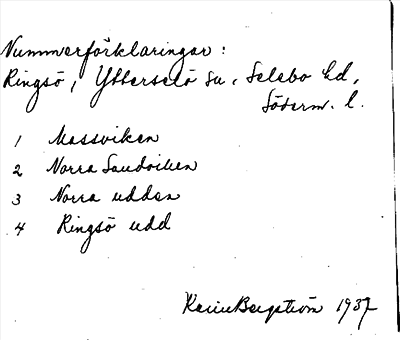 Nummerförklaringar:
Ringsö, Ytterselö sn, Selebo hd,
Söderm. l.
1 Massviken
2 Norra Sandviken
3 Norra udden
4 Ringsö udd
Karin Bergström 1937